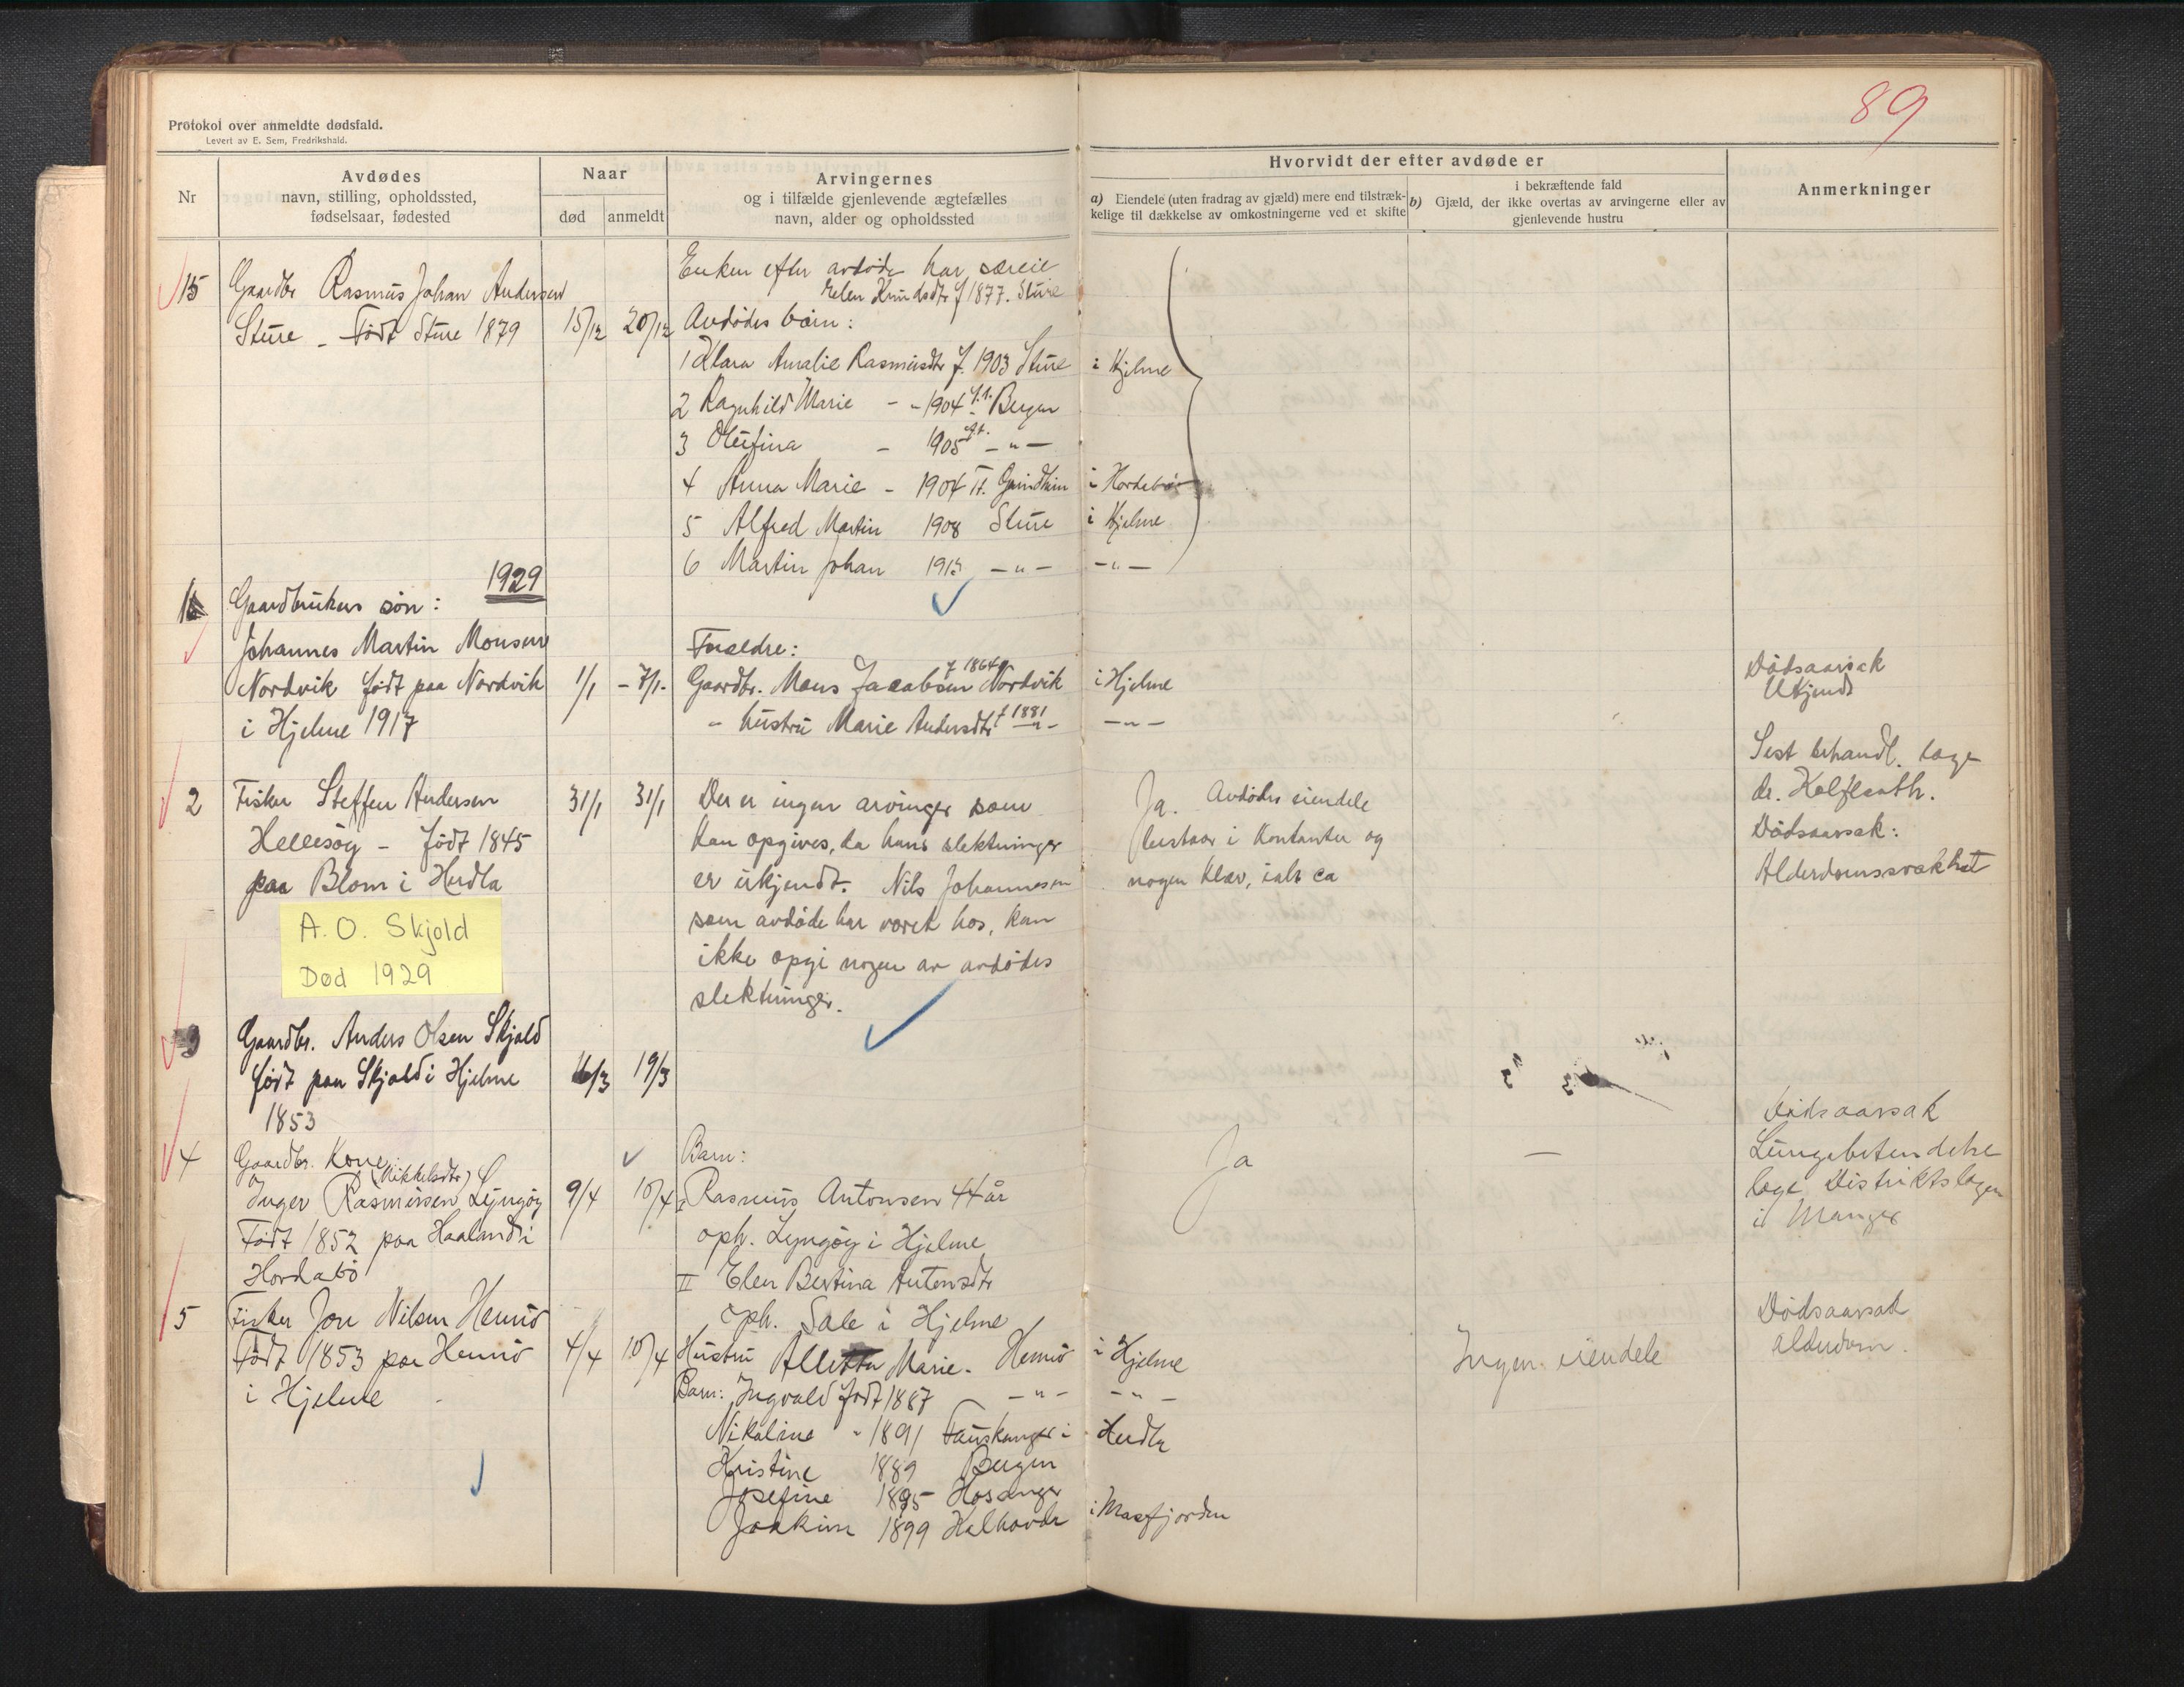 89
Protokol over anmeldte dødsfald.
Levert av E. Sem, Fredrikshald.
Nr
Avdødes
navn, stilling, opholdssted,
fødselsaar, fødested
Naar
død anmeldt
Arvingernes
og i tilfælde gjenlevende ægtefælles
navn, alder og opholdssted
Hvorvidt der efter avdøde er
a) Eiendele (uten fradrag av gjæld) mere end tilstræk-
kelige til dækkelse av omkostningerne ved et skifte
i bekræftende fald
b) Gjæld, der ikke overtas av arvingerne eller av
gjenlevende hustru
Anmerkninger
15 Gaardbr Rasmus Johan Andersen
Sture - Født Sture 1879 15/12 20/12
Enken efter avdøde har særeie
Elen Knudsdtr f 1877. Sture
Avdødes børn:
1 Klara Amalie Rasmusdtr f. 1903 Sture i Hjelme
2 Ragnhild Marie - - 1904 f.t. Bergen
3 Olufina - 1905 f.t. - " -
4 Anna Marie - 1904 f.t. Grindheim i Hordabø
5 Alfred Martin 1908 Sture i Hjelme
6 Martin Johan 1913 - " - - " -
1929
1 Gaardbrukers søn:
Johannes Martin Monsen
Nordvik født paa Nordvik 1/1 - 7/1-
i Hjelme 1917
Foraeldre:
Gaardbr. Mons Jacabsen f 1864 Nordvik i Hjelme
- hustru Marie Andersdtr f 1881 - " - - " -
Dødsaarsak
Ukjendt
2 Fisker Steffen Andersen 31/1 31/1
Hellesøy - født 1845
paa Blom i Herdla
Der er ingen arvinger som
kan opgives, da hans slektninger
er ukjendt. Nils Johannesen
som avdøde har været hos, kan
ikke opgi nogen av avdødes
slektninger.
Ja. Avdødes eiendele
bestaar i Kontanter og
nogen Klær, ialt ca
Sist behandl. læge
dr. Kolflaath.
Dødsaarsak:
Alderdomssvakhet
A. O. Skjold
Død 1929
3 Gaardbr. Anders Olsen Skjold
født paa Skjold i Hjelme 16/3 19/3
1853
4 Gaardbr. Kone
Inger (Mikkelsdtr) Rasmussen Lyngøy 9/4 10/4
Født 1852 paa Haaland i
Hordabø
Barn:
I Rasmus Antonsen 44 år
oph. Lyngøy i Hjelme
II Elen Bertina Antonsdtr
oph. Sale i Hjelme
Ja -
Dødsaarsak
Lungebetendelse
læge Distriktslægen
i Manger
5 Fisker Jon Nilsen Hernø
Født 1853 paa Hernø 4/4 10/4
i Hjelme
Hustru Alletta Marie. Hernø i Hjelme
Barn: Ingvald født 1887 - " - - " -
Nikoline - 1891 Fauskanger i Herdla
Kristine 1889 Bergen
Josefine 1895 Hosanger
Joakim 1899 Kalhovde i Masfjorden
Ingen eiendele
Dødsaarsak
alderdom.